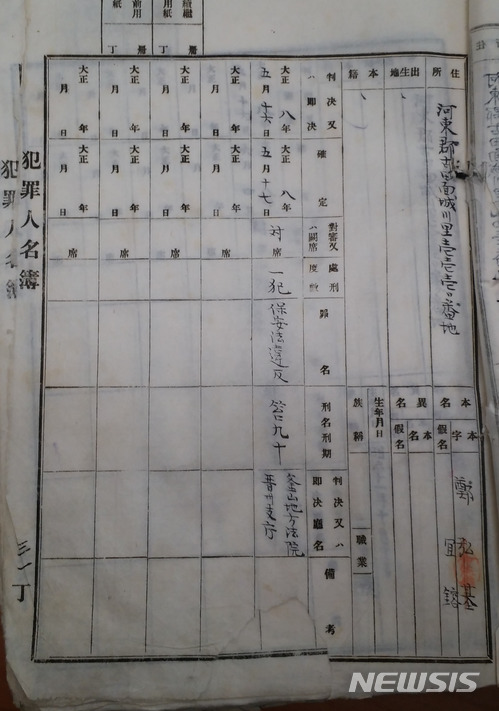 住所
河東郡古田面城川里壱壱壱ノ番地
出生地
本籍
判決又ハ即決
大正八年五月十六日
大正 年 月 日
大正 年 月 日
大正 年 月 日
確定
大正八年五月十七日
大正 年 月 日
大正 年 月 日
大正 年 月 日
對審又ハ闕席
対席
席
席
席
處刑度數
一犯
罪名
保安法違反
刑名刑期
笞九十
判決又ハ即決廳名
釜山地方法院
晋州支庁
備考
本名
本字
假名
異名
本名
假名
生年月日
族稱
職業
鄭
基
宜鎔
犯罪人名簿
犯罪人名簿
丁
用紙
丁
前用紙
丁
NEWSIS